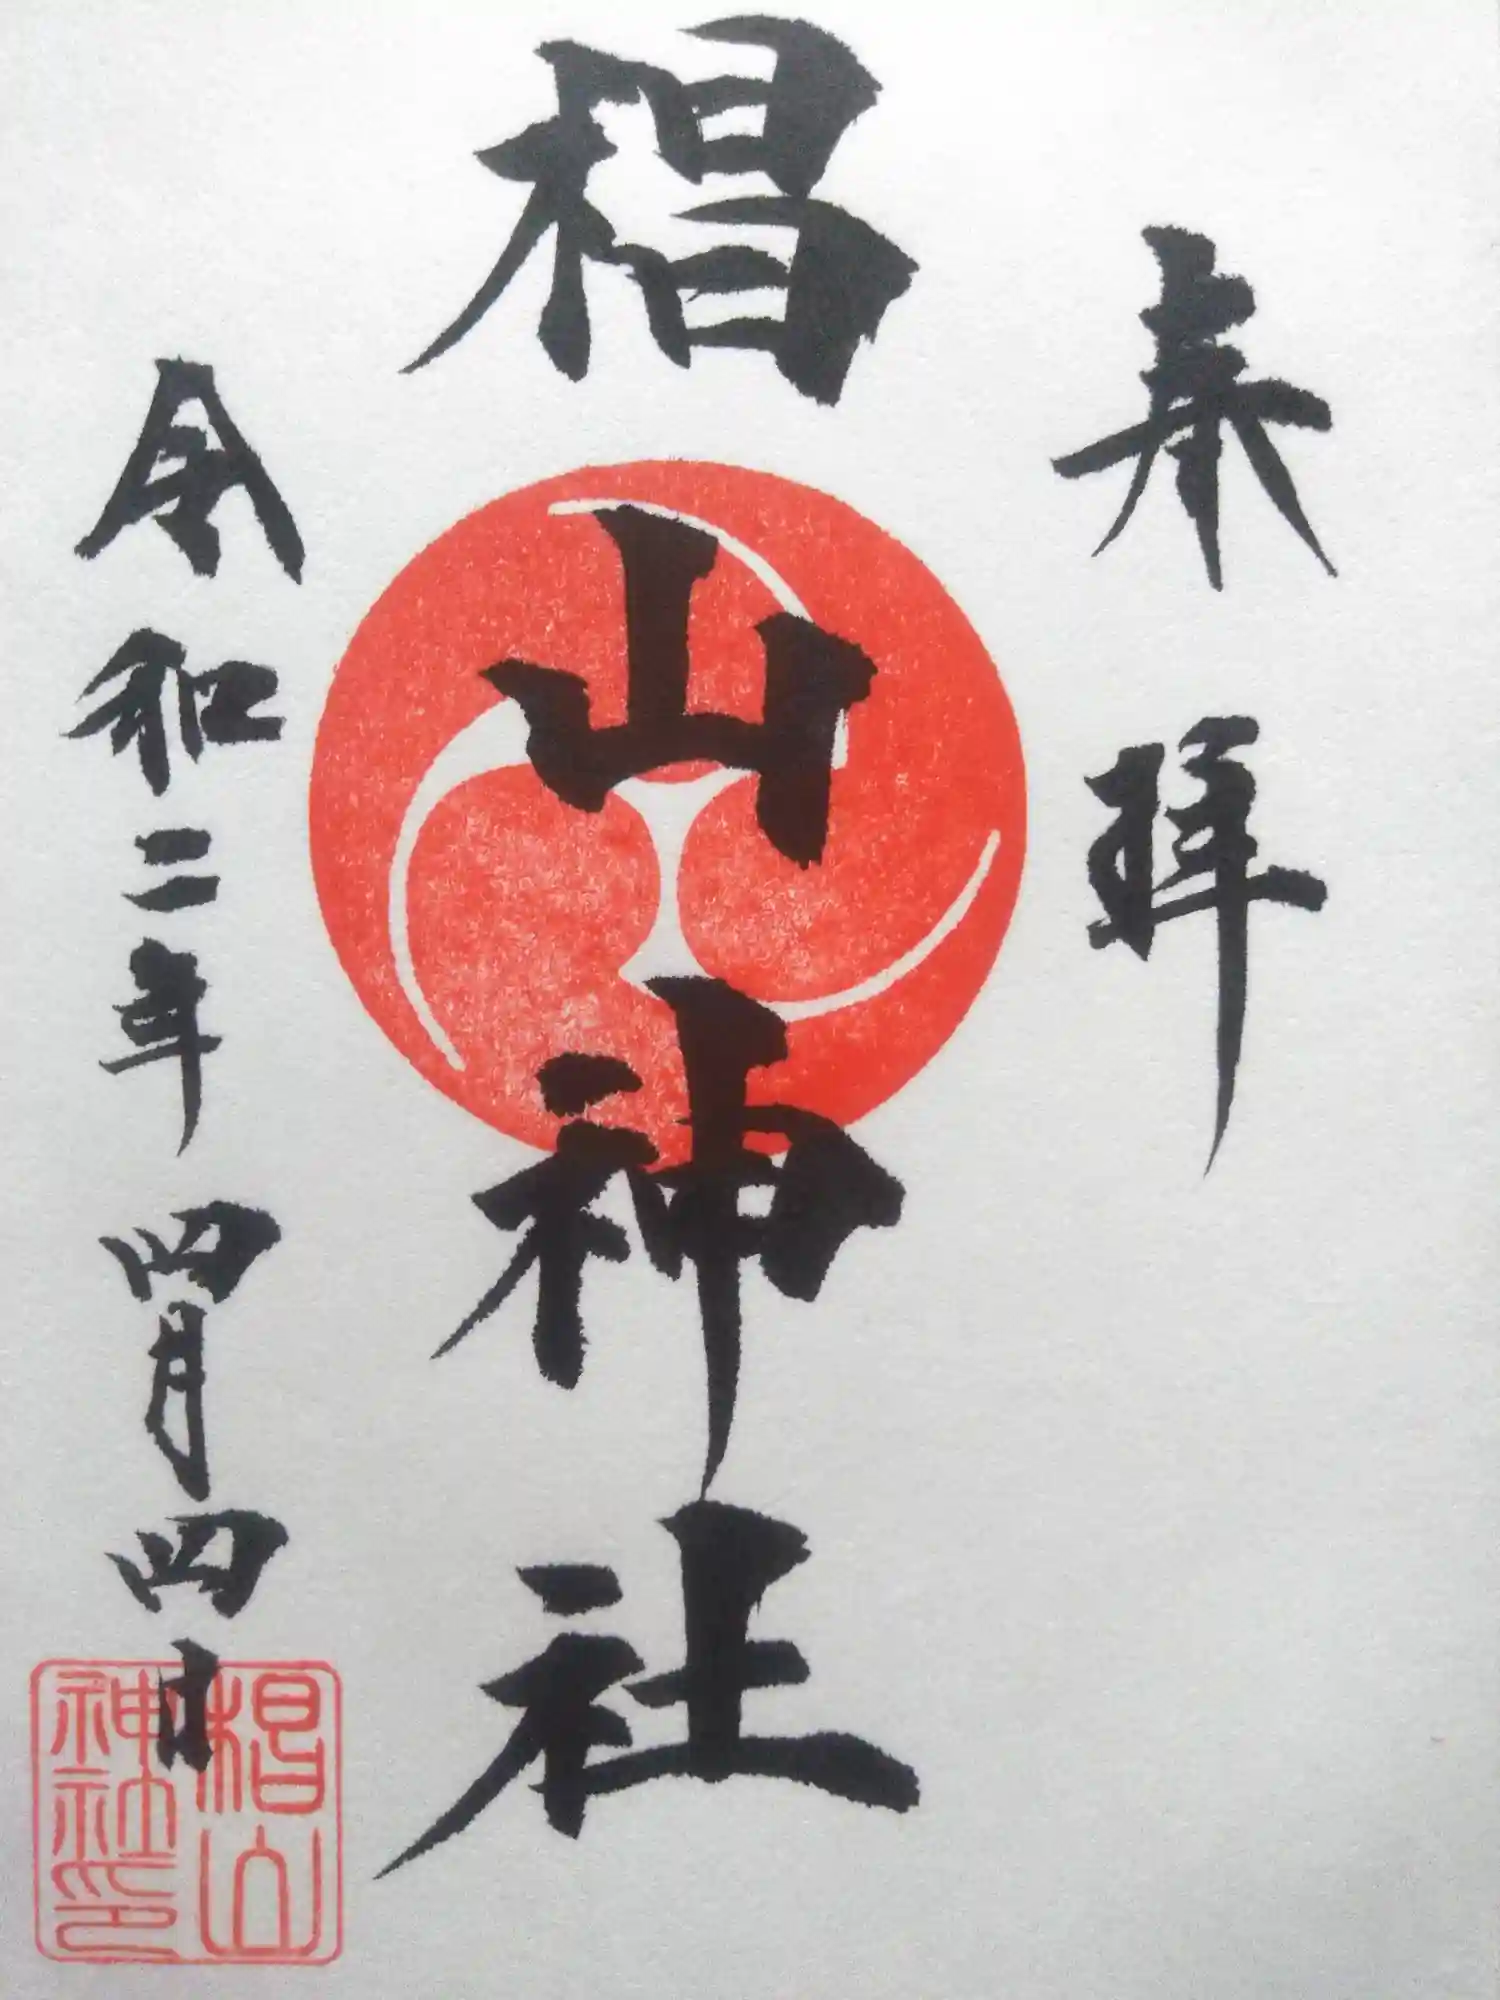 奉拝
椙山神社
令和二年四月四日
椙山
神社印